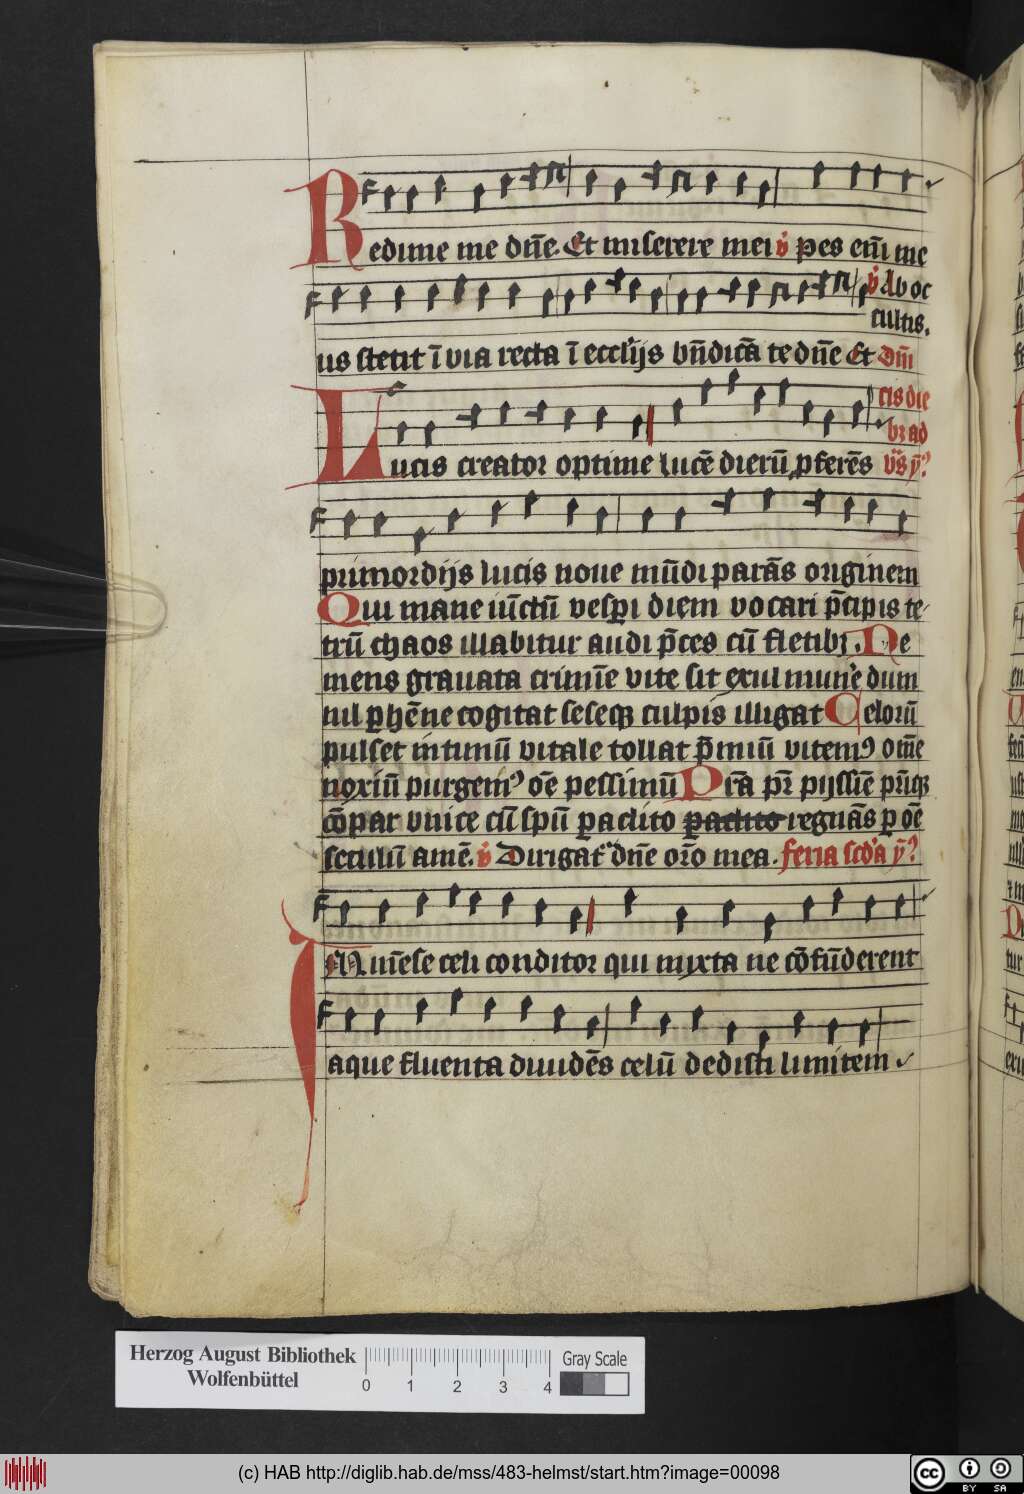 Redime me dn̄e. Et miserere mei v̇ pes em̄ me
v̇ Ab oc
cultis.
us stetit ī via recta ī eccl'ijs bn̄dicā te dn̄e Et Dn̄i
cis die
bꝫ ad
Lucis creator optime lucē dierū ꝓferēs vꝰs ẏ?
primordijs lucis noue mūdi parās originem
Qui mane iūctū vesꝑi diem vocari p̄cipis te-
trū chaos illabitur audi p̄ces cū fletibꝫ. Ne
mens grauata crimīe vite sit exul mun'e dum
nil ꝑhēne cogitat seseqꝫ culpis illigat Celorū
pulset intimū vitale tollat p̄miū vitemꝰ om̄e
noxiū purgemꝰ oē pessimū Pr̄a pr̄ pijssīe pr̄iqꝫ
cōpar vnice cū sp̄ū ꝑaclito ꝑaclito regnās ꝑ oē
seculū amē. v̇ Dirigat' dn̄e or̄o mea. feria scd'a ẏ?
INmēse celi conditor qui mixta ne cōfūderent
aque fluenta diuidēs celū dedisti limitem
Herzog August Bibliothek
Wolfenbüttel
0 1 2 3 4
Gray Scale
(c) HAB http://diglib.hab.de/mss/483-helmst/start.htm?image=00098
cc BY SA